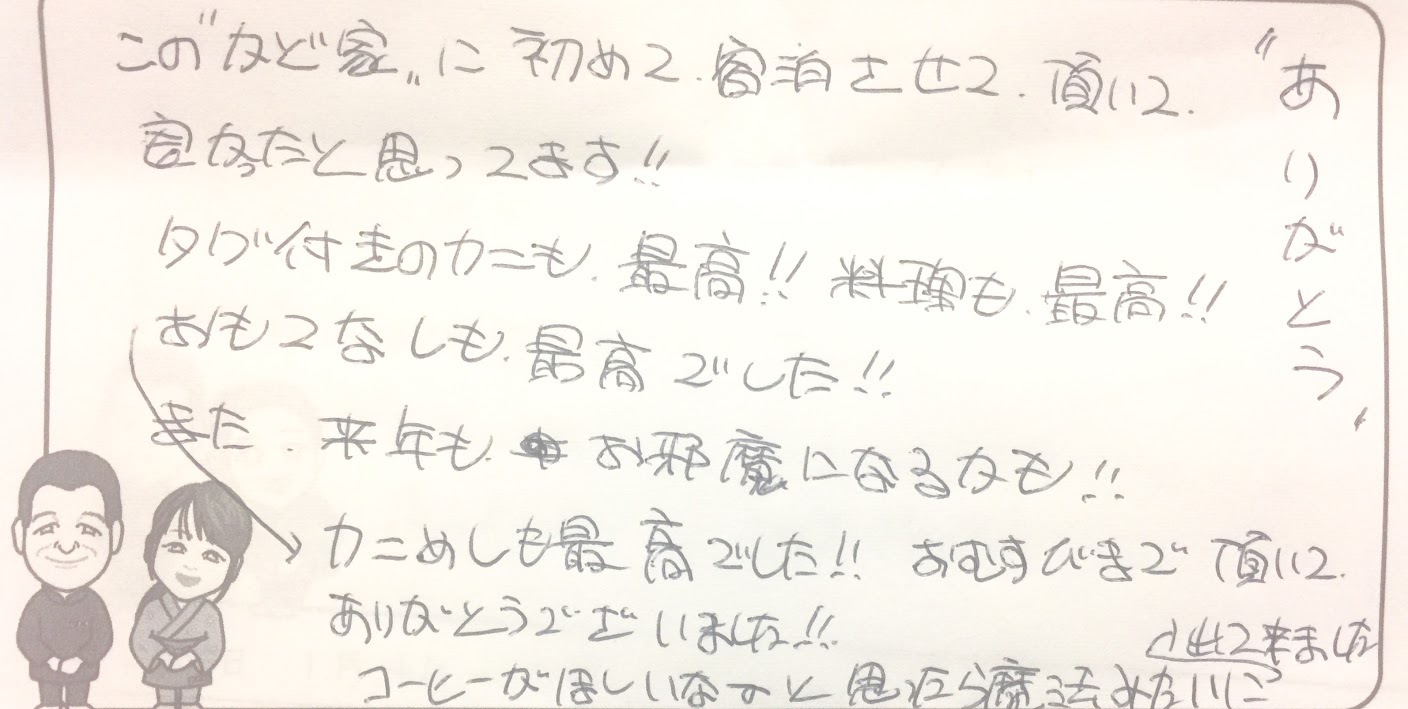 この"かど家"に初めて、宿泊させて、頂いて、
良かったと思ってます!!
タグ付きのカニも、最高!! 料理も、最高!!
おもてなしも、最高でした!!
また、来年も、お邪魔になるかも!!
カニめしも最高でした!! おむすびまで頂いて、
ありがとうございました!!
コーヒーがほしいなーと思ったら魔法みたいに
出て来ました
"ありがとう"